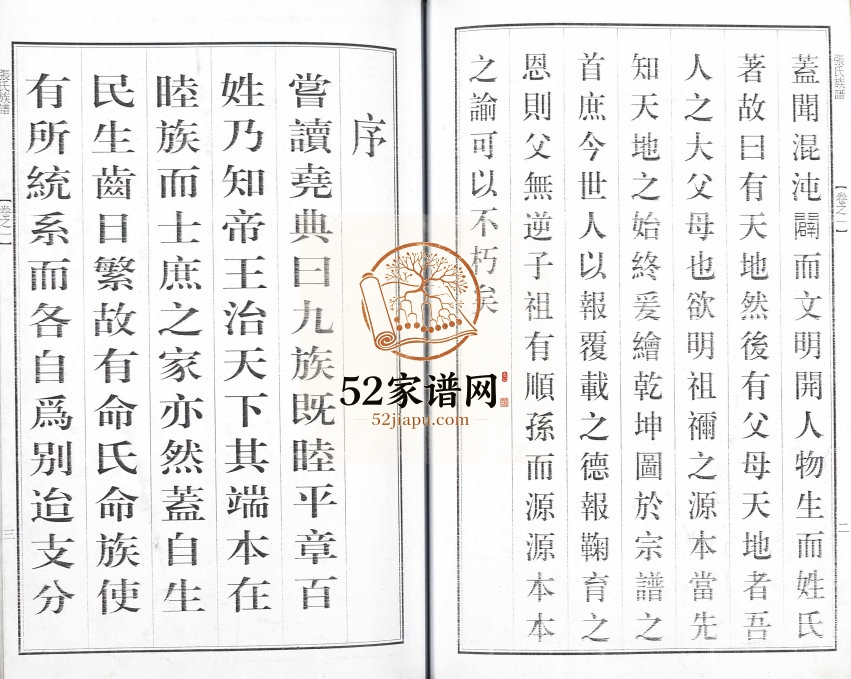 張氏族譜
【卷之一】
二
蓋聞混沌闢而文明開人物生而姓氏
著故曰有天地然後有父母天地者吾
人之大父母也欲明祖禰之源本當先
知天地之始終爰繪乾坤圖於宗譜之
首庶今世人以報覆載之德報鞠育之
恩則父無逆子祖有順孫而源源本本
之諭可以不朽矣
序
嘗讀堯典曰九族既睦平章百
姓乃知帝王治天下其端本在
睦族而士庶之家亦然蓋自生
民生齒日繁故有命氏命族使
有所統系而各自爲別迨支分
張氏族譜
【卷之一】
三
52家谱网
52jiapu.com